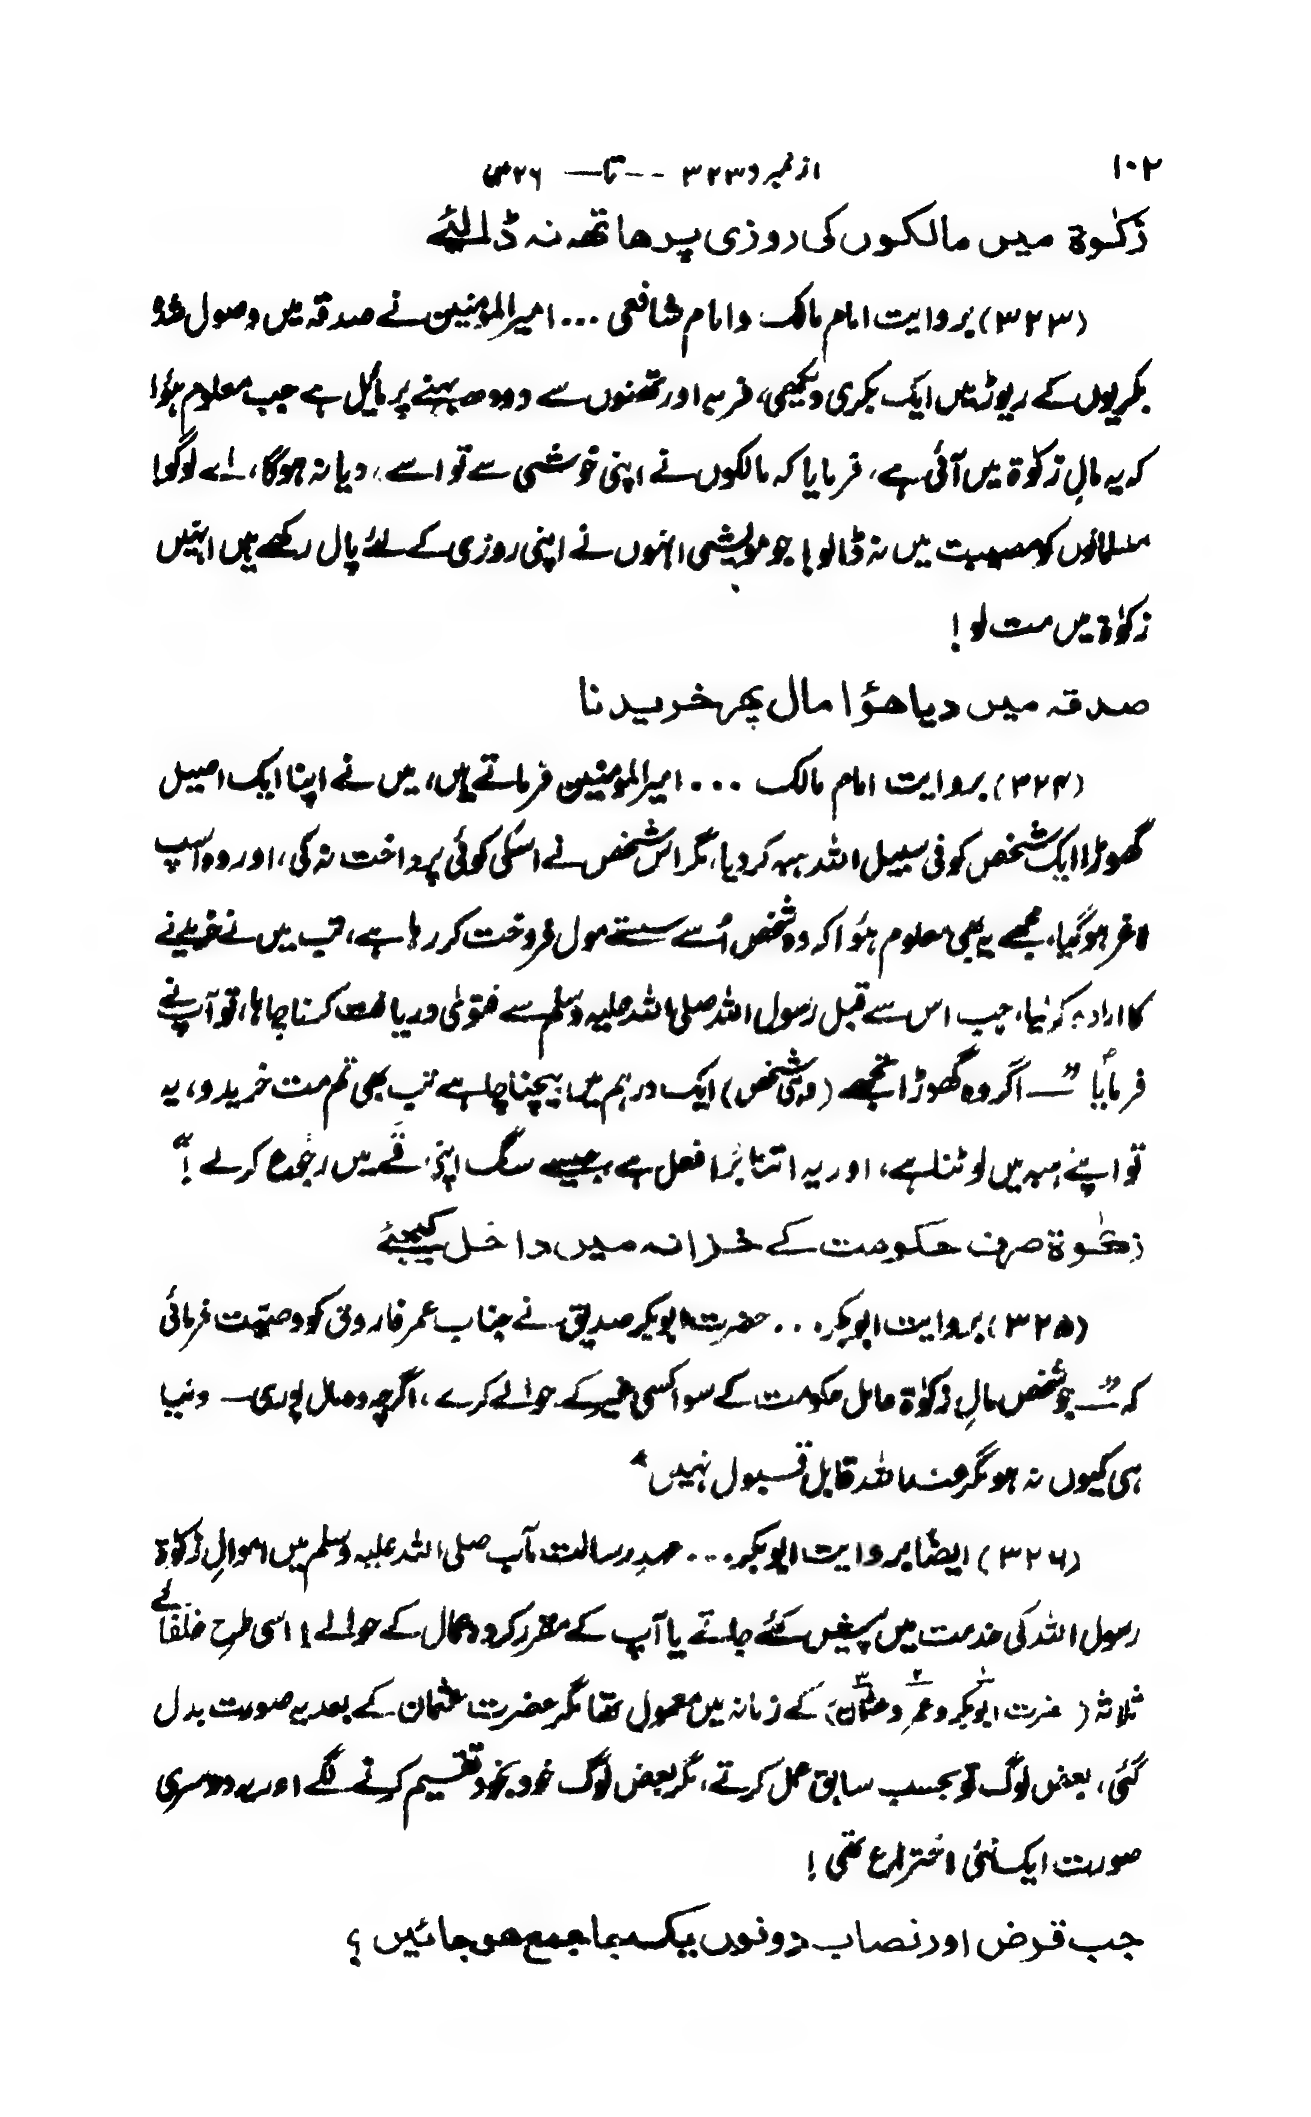 ۱۰۲ از نمبر ۳۲۳ -- تا — ۳۲۶
زکوٰۃ میں مالکوں کی روزی پر ھاتھ نہ ڈالیئے
(۳۲۳) بروایت امام مالک و امام شافعی ... امیر المومنین نے صدقہ میں وصول شدہ
بکریوں کے ریوڑ میں ایک بکری دیکھی، فربہ اور تھنوں سے دودھ بہنے پر مائل ہے جب معلوم ہؤا
کہ یہ مالِ زکوٰۃ میں آئی ہے، فرمایا کہ مالکوں نے اپنی خوشی سے تو اسے دیا نہ ہوگا، اے لوگو!
مسلمانوں کو مصیبت میں نہ ڈالو! جو مویشی انہوں نے اپنی روزی کے لئے پال رکھے ہیں انہیں
زکوٰۃ میں مت لو!
صدقہ میں دیا ھؤا مال پھر خریدنا
(۳۲۴) بروایت امام مالک ... امیر المومنین فرماتے ہیں، میں نے اپنا ایک اصیل
گھوڑا ایک شخص کو فی سبیل اللہ ہبہ کر دیا، مگر اس شخص نے اسکی کوئی پرداخت نہ کی، اور وہ اسپ
لاغر ہو گیا، مجھے یہ بھی معلوم ہؤا کہ وہ شخص اُسے سستے مول فروخت کر رہا ہے، تب میں نے خریدنے
کا ارادہ کر لیا، جب اس سے قبل رسول اللہ صلی اللہ علیہ وسلم سے فتویٰ دریافت کرنا چاہا، تو آپ نے
فرمایا "— اگر وہ گھوڑا تجھے (وہی شخص) ایک درہم میں بیچنا چاہے تب بھی تم مت خریدو، یہ
تو اپنے ہبہ میں لوٹنا ہے، اور یہ اتنا بُرا فعل ہے، جیسے سگ اپنی قے میں رجوع کر لے!"
زکوٰۃ صرف حکومت کے خزانہ میں داخل کیجئے
(۳۲۵) بروایت ابوبکر ... حضرت ابوبکر صدیق نے جناب عمر فاروق کو وصیّت فرمائی
کہ "— جو شخص مالِ زکوٰۃ عامل حکومت کے سوا کسی غیر کے حوالے کرے، اگرچہ وہ مال پوری دنیا
ہی کیوں نہ ہو مگر عند اللہ قابل قبول نہیں"
(۳۲۶) ایضاً بروایت ابوبکر ... عہدِ رسالت مآب صلی اللہ علیہ وسلم میں اموالِ زکوٰۃ
رسول اللہ کی خدمت میں پیش کئے جاتے یا آپ کے مقرر کردہ عمال کے حوالے! اسی طرح خلفائے
ثلاثہ (حضرت ابوبکر و عمر و عثمان) کے زمانہ میں معمول تھا مگر حضرت عثمان کے بعد یہ صورت بدل
گئی، بعض لوگ تو بحسب سابق عمل کرتے، مگر بعض لوگ خود بخود تقسیم کرنے لگے اور یہ دوسری
صورت ایک نئی اختراع تھی!
جب قرض اور نصاب دونوں یکجا جمع ھو جائیں؟